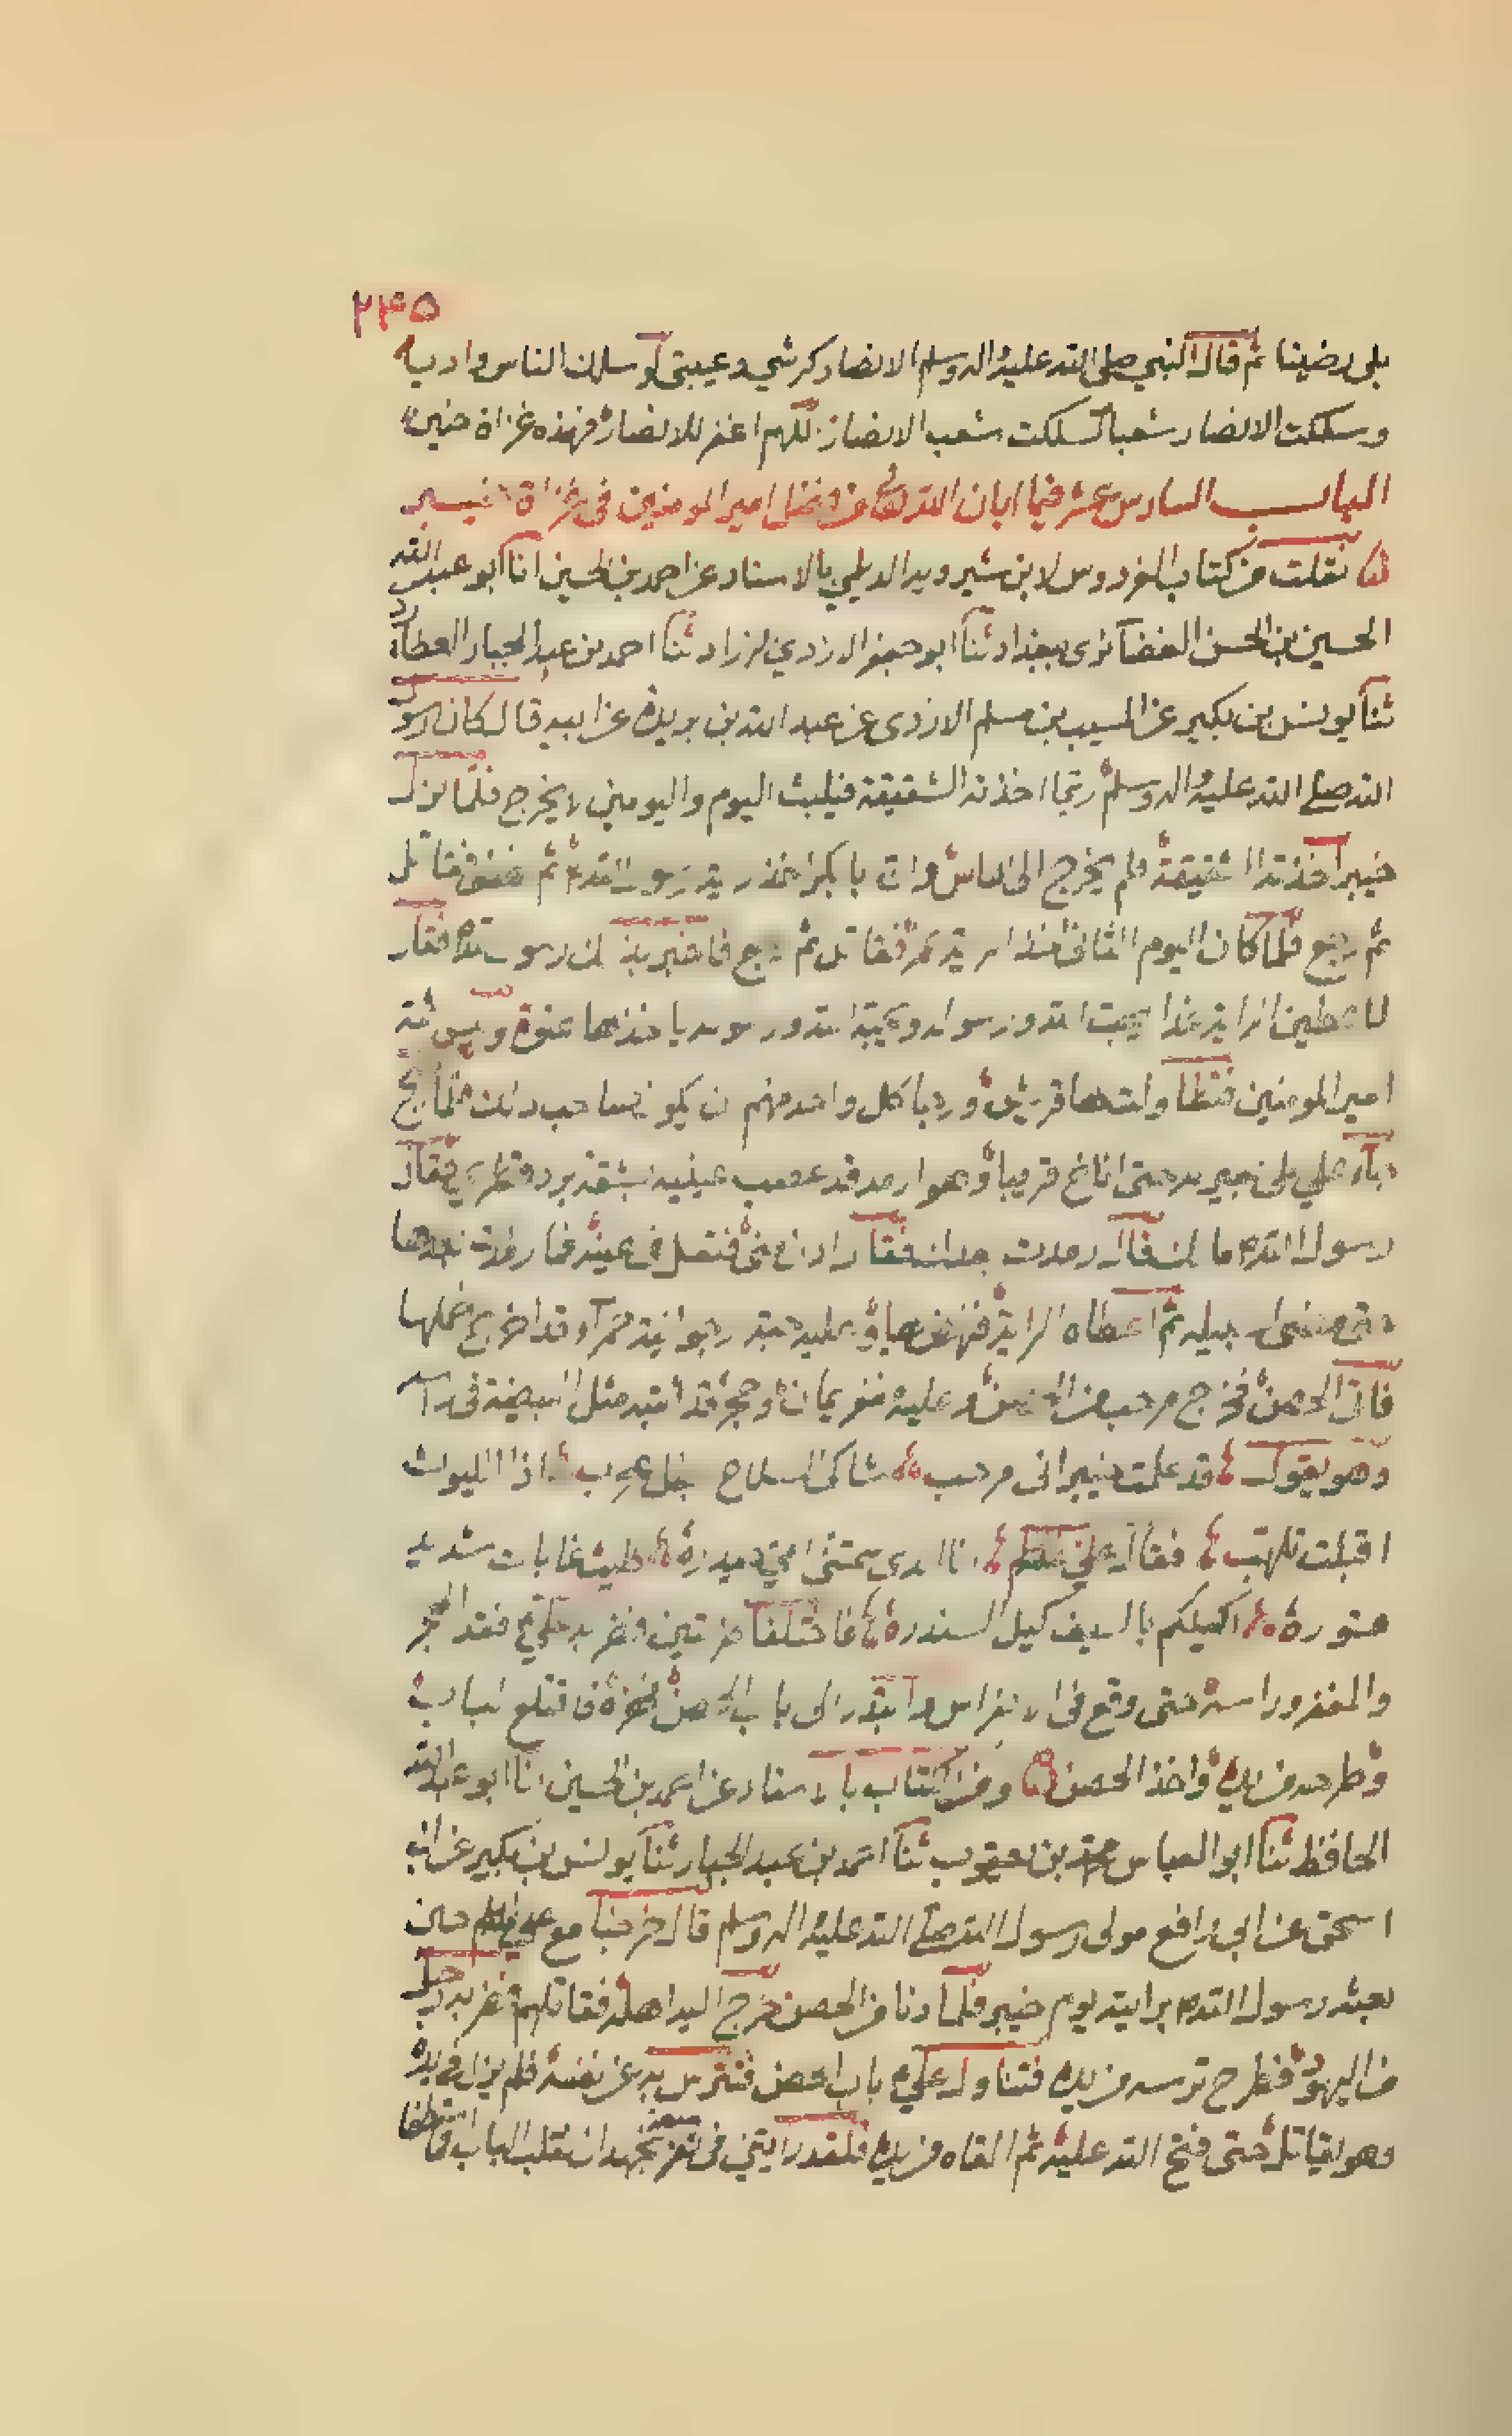 ٢٤٥
بلى رضينا ثم قال النبي صلى الله عليه اله وسلم الانصار كرشي وعيبتي لو سلك الناس واديا
وسلكت الانصار شعبا لسلكت شعب الانصار اللهم اغفر للانصار فهذه غزاة حنين
الباب السادس عشر فيما ابان الله تعالى من فضل امير المومنين في غزاة خيبر
نقلت من كتاب الفردوس لابن شيرويه الديلمي بالاسناد عن احمد بن الحسين انا ابو عبد الله
الحسين بن الحسن الغضائري ببغداد ثنا ابو جعفر الرزاز ثنا احمد بن عبد الجبار العطاردي
ثنا يونس بن بكير عن المسيب بن مسلم الازدي عن عبد الله بن بريدة عن ابيه قال كان رسول
الله صلى الله عليه اله وسلم ربما اخذته الشقيقة فيلبث اليوم واليومين لا يخرج فلما نزل
خيبر اخذته الشقيقة فلم يخرج الى الناس وان ابا بكر اخذ راية رسول الله ثم نهض فقاتل
ثم رجع فلما كان اليوم الثاني اخذ الراية عمر فقاتل ثم رجع فاخبر بذلك رسول الله فقال
لاعطين الراية غدا يحب الله ورسوله ويحبه الله ورسوله ياخذها عنوة وليس ثمه
امير المومنين فتطاولت لها قريش ورجا كل واحد منهم ان يكون صاحب ذلك فلما اصبح
جاء علي على بعير له حتى اناخ قريبا وهو ارمد قد عصب عينيه بشقة برد قطري فقال
رسول الله ما لك فقال رمدت بعدك فقال ادن مني فتفل في عينه فما وجعت بعدها
حتى مضى لسبيله ثم اعطاه الراية فنهض بها وعليه جبة ارجوانية حمراء قد اخرج خملها
فاتى الحصن فخرج مرحب من الحصن وعليه مغفر يمان وحجر قد ثقبه مثل البيضة في راسه
وهو يقول قد علمت خيبر اني مرحب شاكي السلاح بطل مجرب اذا الليوث
اقبلت تلهب فقال علي انا الذي سمتني امي حيدره كليث غابات شديد
قسوره اكيلكم بالسيف كيل السندره فاختلفا ضربتين فضربه علي فقد الحجر
والمغفر وراسه حتى وقع في الاضراس وابتدر الى باب الحصن فاقتلع الباب
وطرحه من يده واخذ الحصن ومن الكتاب بالاسناد عن احمد بن الحسين انا ابو عبد الله
الحافظ ثنا ابو العباس محمد بن يعقوب ثنا احمد بن عبد الجبار ثنا يونس بن بكير عن ابن
اسحق عن ابي رافع مولى رسول الله صلى الله عليه اله وسلم قال خرجنا مع علي حين
بعثه رسول الله برايته يوم خيبر فلما دنا من الحصن خرج اليه اهله فقاتلهم فضربه رجل
من اليهود فطرح ترسه من يده فتناول علي باب الحصن فتترس به عن نفسه فلم يزل في يده
وهو يقاتل حتى فتح الله عليه ثم القاه من يده فلقد رايتني في نفر نجهد ان نقلب الباب